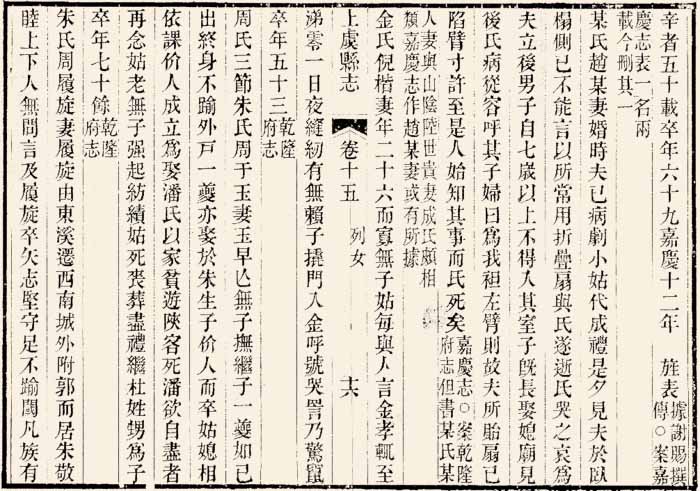 辛者五十載卒年六十九嘉慶十二年 旌表據謝賜撰傳○案嘉
慶志表一名兩載今刪其一
某氏趙某妻婚時夫已病劇小姑代成禮是夕見夫於臥
榻側已不能言以所常用折疊扇與氏遂逝氏哭之哀爲
夫立後男子自七歲以上不得入其室子旣長娶媳廟見
後氏病從容呼其子婦曰爲我袒左臂則故夫所貽扇已
陷臂寸許至是人始知其事而氏死矣嘉慶志○案乾隆府志但書某氏某
人妻與山陰陸世貴妻成氏頗相類嘉慶志作趙某妻或有所據
金氏倪楷妻年二十六而寡無子姑每與人言金孝輒至
上虞縣志 卷十五 列女 十六
涕零一日夜縫紉有無賴子撓門入金呼號哭詈乃驚竄
卒年五十三乾隆府志
周氏三節朱氏周于玉妻玉早亾無子撫繼子一夔如已
出終身不踰外戸一夔亦娶於朱生子价人而卒姑媳相
依課价人成立爲娶潘氏以家貧遊陜客死潘欲自盡者
再念姑老無子强起紡績姑死喪葬盡禮繼杜姓甥爲子
卒年七十餘乾隆府志
朱氏周履旋妻履旋由東溪遷西南城外附郭而居朱敬
睦上下人無間言及履旋卒矢志堅守足不踰閾凡族有